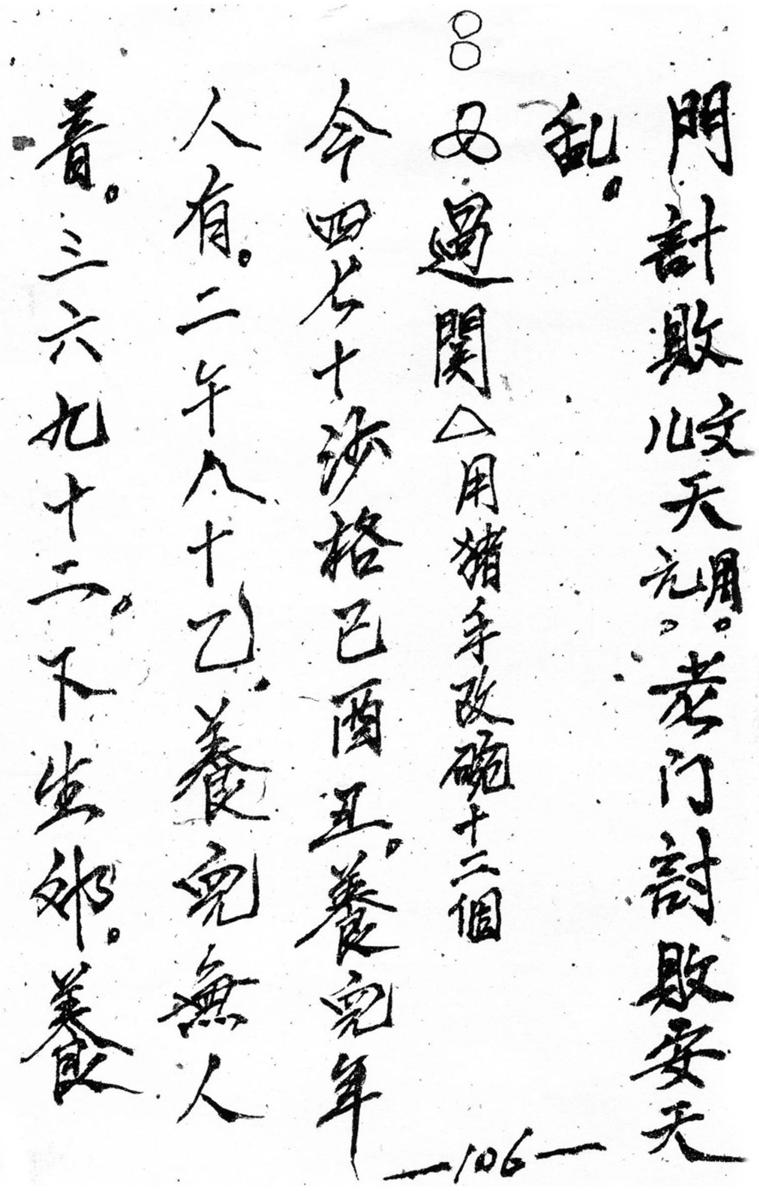 門計敗文儿天月元。老门討敗安天
乱。
又過関△用猪手改碗十二個
今四七十沙格巳酉丑。養兒年
人有。二午八十乙。養兒無人
着。三六九十二。下生邜。養
—106—